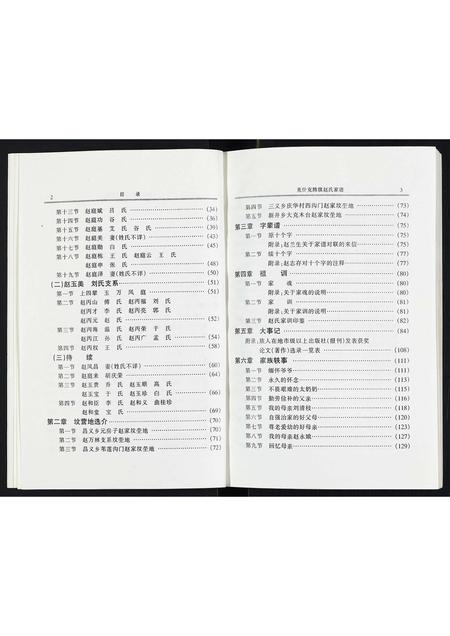 2 目 录
第十三节 赵庭斌 吕 氏 (34)
第十四节 赵庭功 谷 氏 (36)
第十五节 赵庭基 艾 氏 谷 氏 (39)
第十六节 赵庭美 妻(姓氏不详) (43)
第十七节 赵庭勤 白 氏 (45)
第十八节 赵庭栋 王 氏 赵庭云 王 氏
赵庭申 张 氏 (48)
第十九节 赵庭泽 妻(姓氏不详) (50)
(二)赵玉美 刘氏支系 (51)
第一节 上四辈 玉 万 凤 庭 (51)
第二节 赵丙山 傅 氏 赵丙福 刘 氏
赵丙才 李 氏 赵丙亮 郭 氏
赵丙元 赵 氏 (52)
第三节 赵丙海 温 氏 赵丙荣 于 氏
赵丙江 孙 氏 赵丙广 孟 氏 (54)
第四节 赵丙权 王 氏 (58)
(三)待 续
第一节 赵凤昌 妻(姓氏不详) (60)
第二节 赵庭来 胡庆荣 (64)
第三节 赵玉贵 乔 氏 赵玉顺 高 氏
赵玉宝 于 氏 赵玉珍 白 氏 (66)
第四节 赵和臣 李 氏 赵和义 曲桂珍
赵和奎 宝 氏 (69)
第二章 坟营地选介 (70)
第一节 昌义乡元房子赵家坟茔地 (70)
第二节 赵万林支系坟茔地 (71)
第三节 昌义乡苇莲沟门赵家坟茔地 (72)
克什克腾旗赵氏家谱 3
第四节 三义乡庆华村西沟门赵家坟茔地 (73)
第五节 新井乡大克木台赵家坟茔地 (74)
第三章 字辈谱 (75)
第一节 原十个字 (75)
附录:赵兰生关于家谱对联的来信 (75)
第二节 续十个字 (77)
附录:赵志存对十个字的注释 (77)
第四章 祖 训 (80)
第一节 家 魂 (80)
附录:关于家魂的说明 (80)
第二节 家 训 (81)
附录:关于家训的说明 (81)
第三节 赵氏家训印鉴 (82)
第五章 大事记 (84)
附录:族人在地市级以上出版社(报刊)发表获奖
论文(著作)选录一览表 (108)
第六章 家族轶事 (111)
第一节 缅怀爷爷 (111)
第二节 永久的怀念 (113)
第三节 不畏艰难的太奶奶 (115)
第四节 勤劳俭朴的父亲 (116)
第五节 我的母亲刘清枝 (118)
第六节 自强治家的好父母 (120)
第七节 尊老爱幼的好母亲 (123)
第八节 我的母亲赵永娥 (127)
第九节 回忆母亲 (129)